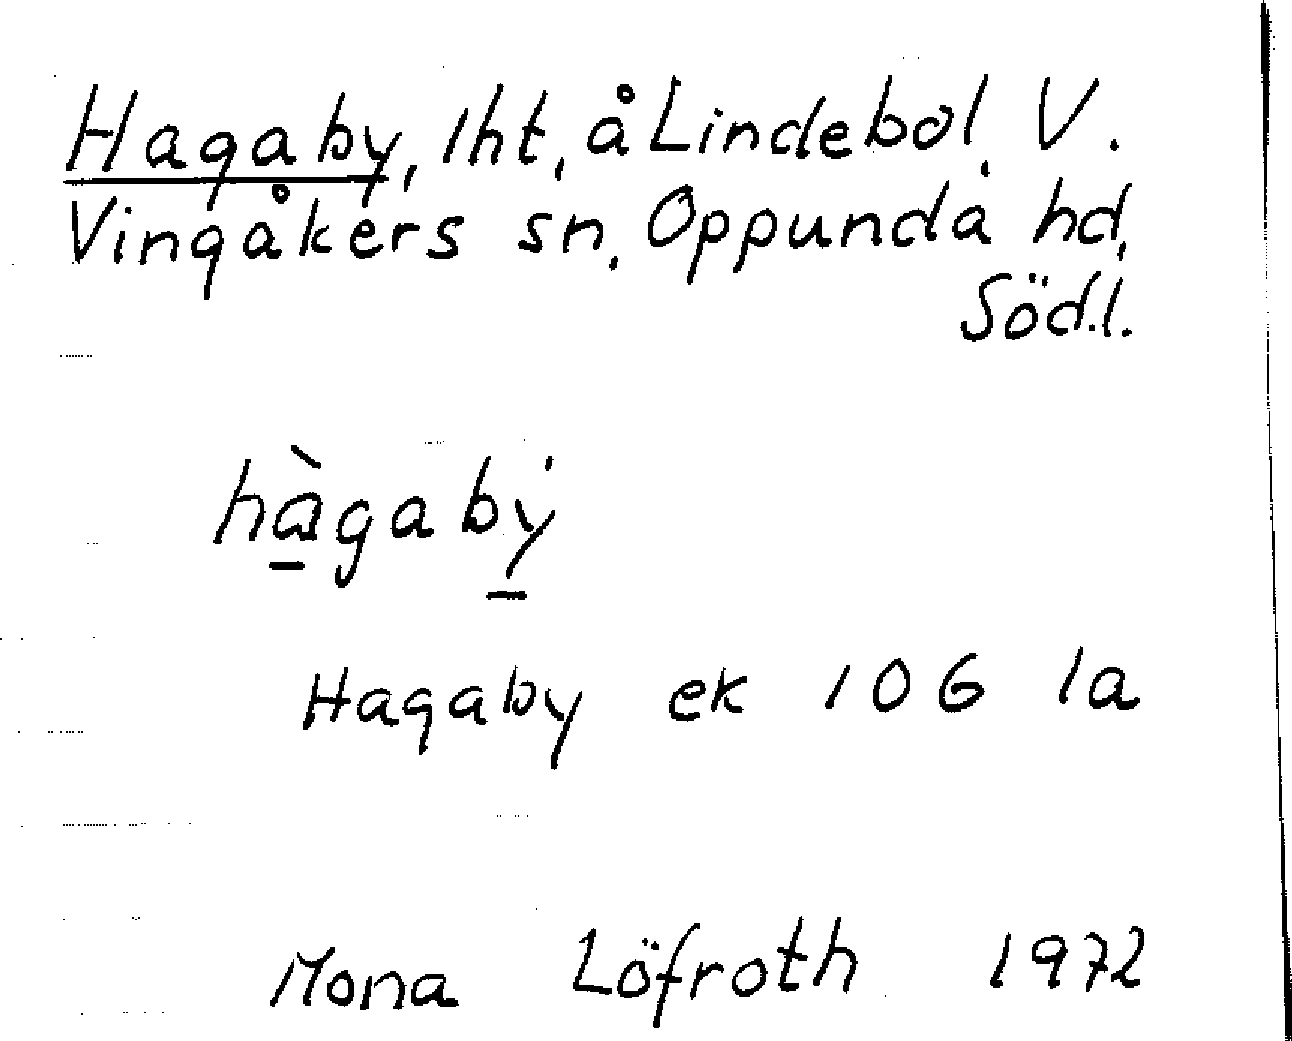 Hagaby, lht, å Lindebol, V.
Vingåkers sn, Oppunda hd,
Södl.
hàgabẏ
Hagaby ek 10G 1a
Mona Löfroth 1972